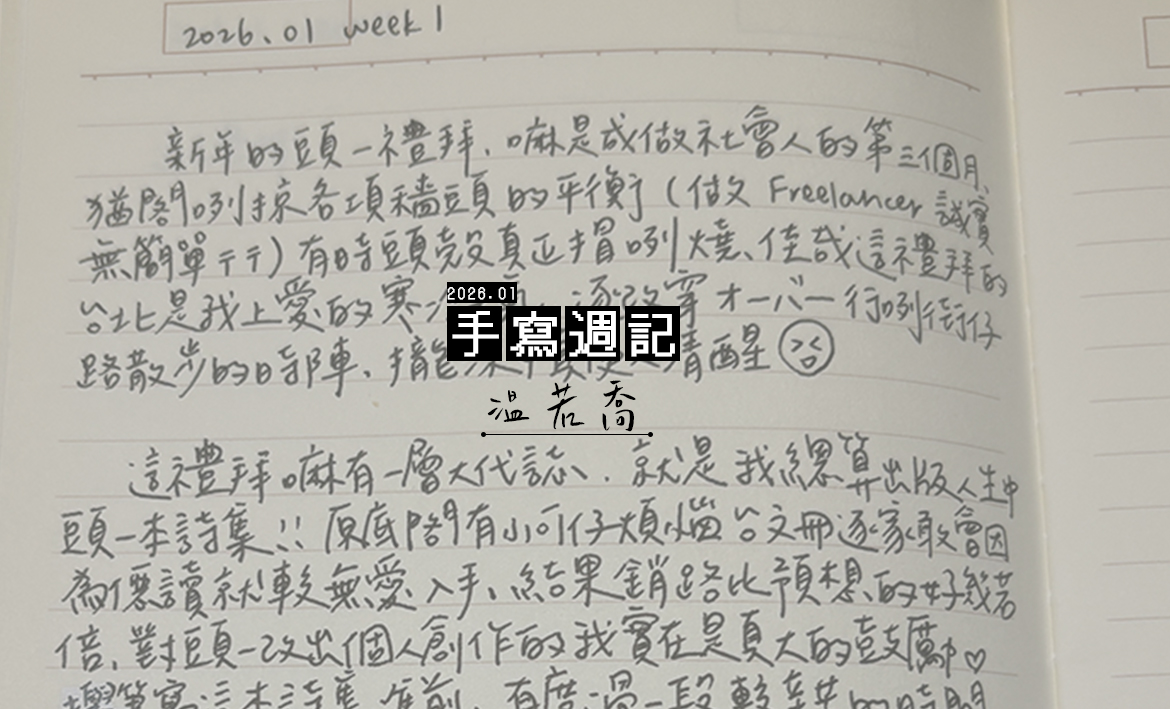 2026.01 week 1
新年的頭一禮拜、嘛是成做社會人的第三個月、
猶閣咧掠各項穡頭的平衡(做 Freelancer 誠實
無簡單TT)有時頭殼真正捎咧燒、佳哉這禮拜的
台北是我上愛的寒冷 逐改穿オーバー行咧街仔
路散步的時陣、攏 清醒
2026.01
手寫週記
溫若喬
這禮拜嘛有一層大代誌、就是我總算出版人生中
頭一本詩集!!原底閣有小可仔煩惱台文冊逐家敢會因
為僫讀就較無愛入手、結果銷路比預想的好幾若
倍、對頭一改出個人創作的我實在是真大的鼓勵♡
寫這本詩集 進前、有度過一段較 的時間